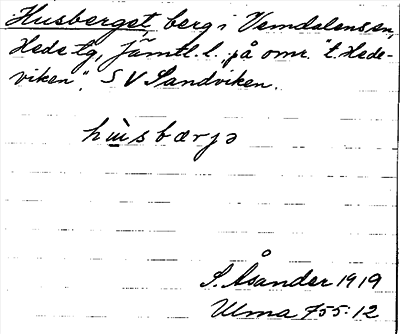 Husberget, berg i Vemdalens sn,
Hede tg, Jämtl. l. på omr. "t. Hede-
viken". S V Sandviken.
hùsbærjə
S. Åsander 1919
Ulma 755:12